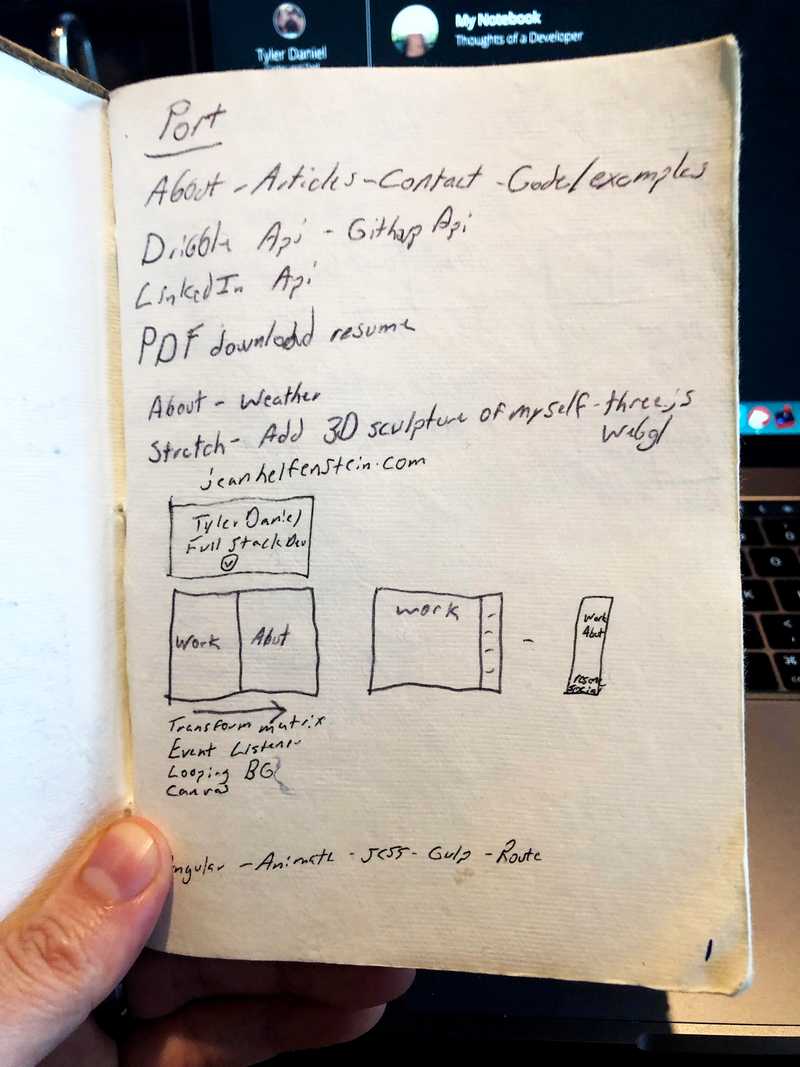 Tyler Daniel
My Notebook
Thoughts of a Developer
Port
About - Articles - Contact - Code/examples
Dribble Api - Githup Api
LinkedIn Api
PDF download resume
About - Weather
Stretch - Add 3D sculpture of myself - three.js
Webgl
jeanhelfenstein.com
Tyler Daniel
Full Stack Dev
Work
Abut
work
-
Work
Abut
resume
social
Transform matrix
Event Listener
Looping BG
Canvas
Angular - Animate - JCSS - Gulp - Route
1